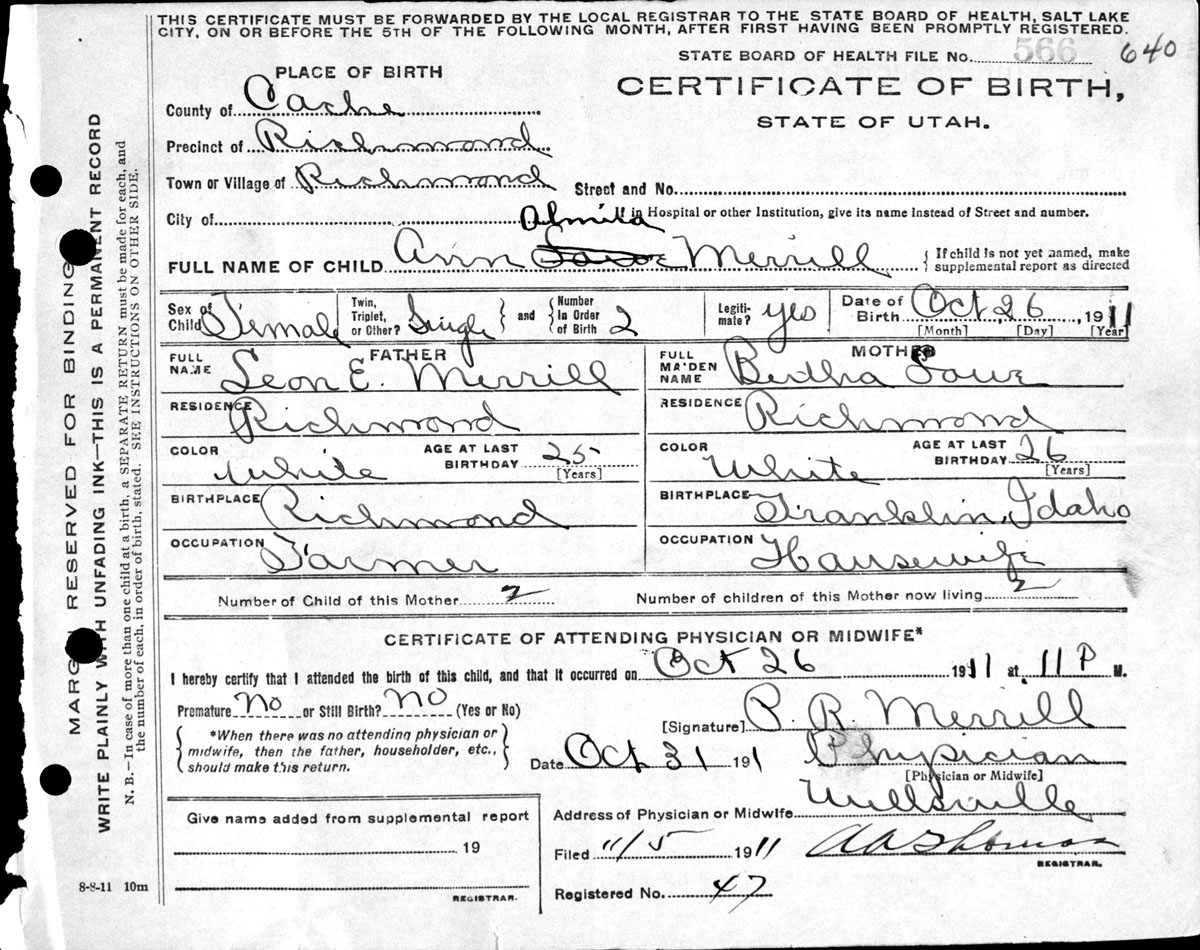 THIS CERTIFICATE MUST BE FORWARDED BY THE LOCAL REGISTRAR TO THE STATE BOARD OF HEALTH, SALT LAKE
CITY, ON OR BEFORE THE 5TH OF THE FOLLOWING MONTH, AFTER FIRST HAVING BEEN PROMPTLY REGISTERED.
STATE BOARD OF HEALTH FILE No. 566 640
PLACE OF BIRTH
CERTIFICATE OF BIRTH,
STATE OF UTAH.
County of Cache
Precinct of Richmond
Town or Village of Richmond Street and No.
City of If in Hospital or other Institution, give its name instead of Street and number.
Almira
FULL NAME OF CHILD Ann Merrill { If child is not yet named, make supplemental report as directed
Sex of Child Female Twin, Triplet, or Other? Single and Number In Order of Birth 2 Legiti- mate? Yes Date of Birth Oct 26, 1911
[Month] [Day] [Year]
FATHER
FULL NAME Leon E. Merrill
RESIDENCE Richmond
COLOR White AGE AT LAST BIRTHDAY 25 [Years]
BIRTHPLACE Richmond
OCCUPATION Farmer
MOTHER
FULL MAIDEN NAME Bertha Lowe
RESIDENCE Richmond
COLOR White AGE AT LAST BIRTHDAY 26 [Years]
BIRTHPLACE Franklin, Idaho
OCCUPATION Housewife
Number of Child of this Mother 2 Number of children of this Mother now living 2
CERTIFICATE OF ATTENDING PHYSICIAN OR MIDWIFE*
I hereby certify that I attended the birth of this child, and that it occurred on Oct 26 1911 at 11 P M.
Premature No or Still Birth? No (Yes or No)
*When there was no attending physician or
midwife, then the father, householder, etc.,
should make this return.
[Signature] P. R. Merrill
Date Oct 31 191 Physician
[Physician or Midwife]
Address of Physician or Midwife Wellsville
Give name added from supplemental report
19
REGISTRAR.
Filed 11/5 1911 A A Thomas
REGISTRAR.
Registered No. 47
8-8-11 10m
MARGIN RESERVED FOR BINDING
WRITE PLAINLY WITH UNFADING INK—THIS IS A PERMANENT RECORD
N. B.—In case of more than one child at a birth, a SEPARATE RETURN must be made for each, and
the number of each, in order of birth, stated. SEE INSTRUCTIONS ON OTHER SIDE.